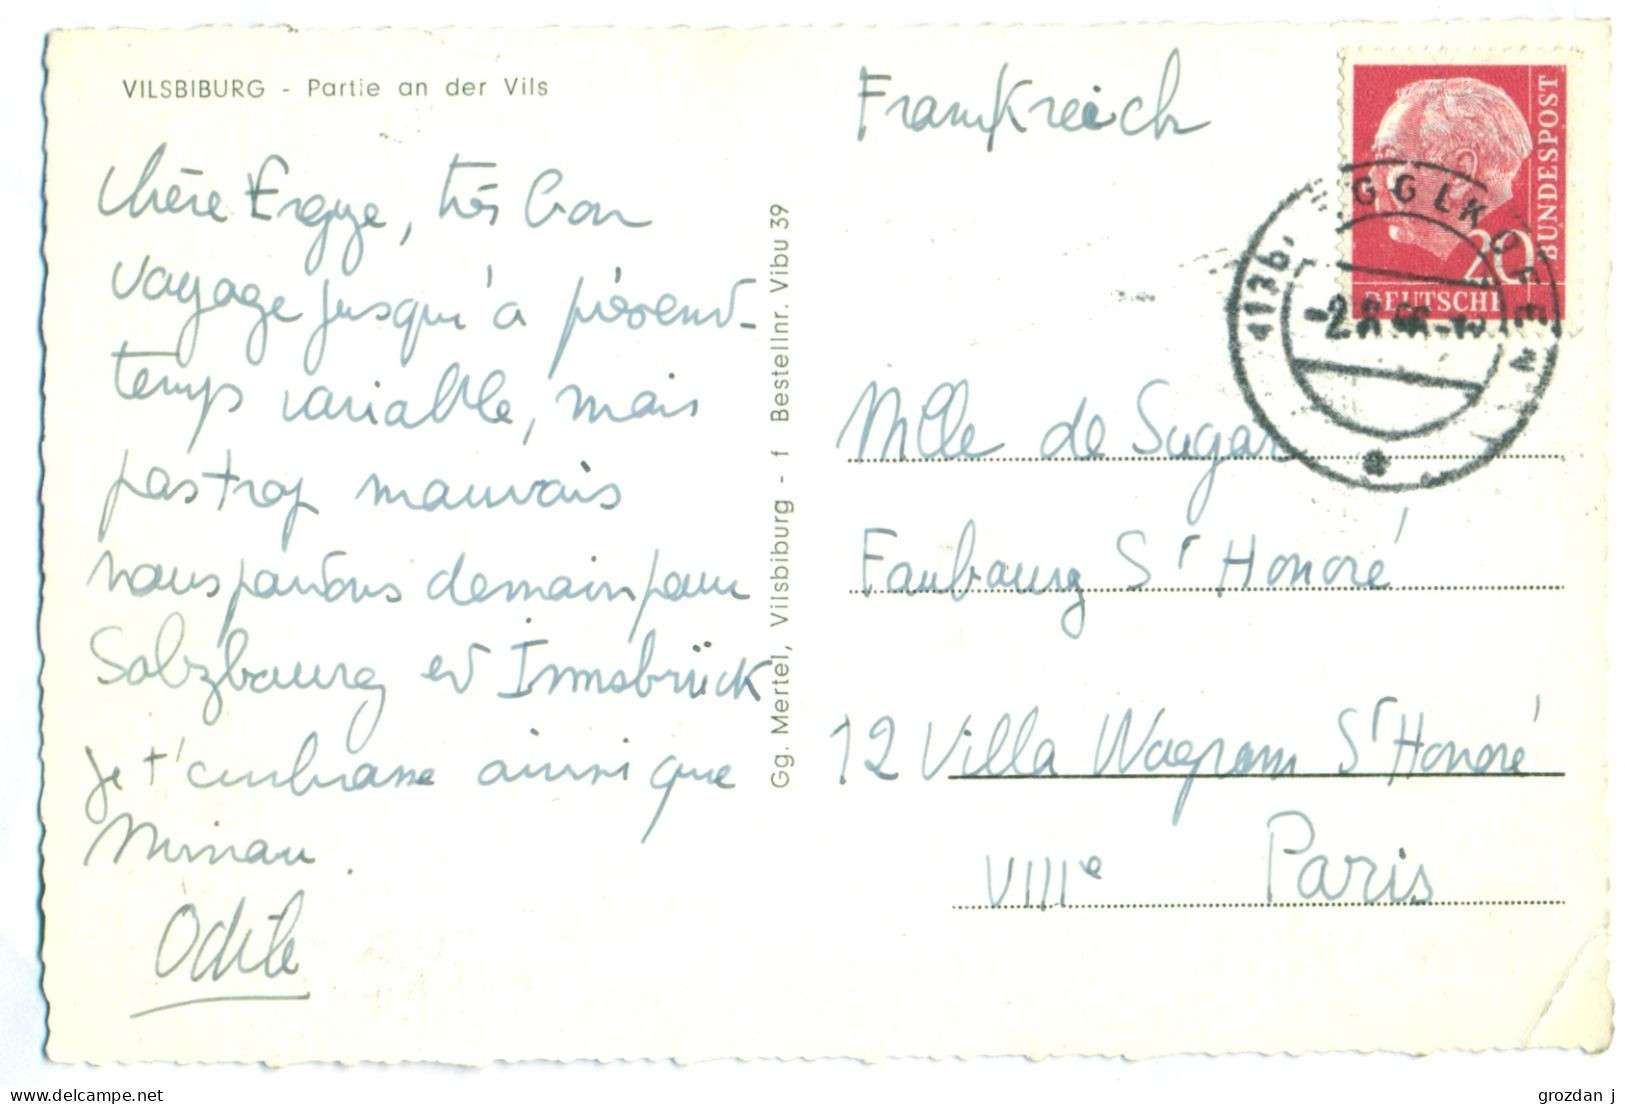 VILSBIBURG - Partie an der Vils
Chère Ergye, très bon
voyage jusqu'à présent -
temps variable, mais
pas trop mauvais
nous partons demain pour
Salzbourg et Innsbrück
je t'embrasse ainsi que
Minau.
Odile
Gg. Mertel, Vilsbiburg - f Bestellnr. Vibu 39
Frankreich
BUNDESPOST
20
DEUTSCHE
GGLKOFEN
Mlle de Sugar
Faubourg St Honoré
12 Villa Wagram St Honoré
VIIIe Paris
grozdan j